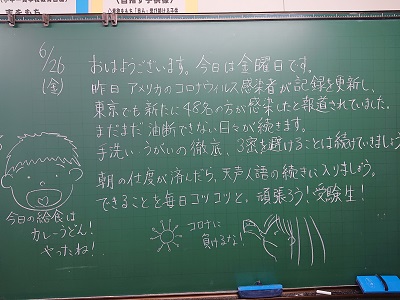 6/26
(金)
おはようございます。今日は金曜日です。
昨日アメリカのコロナウィルス感染者が記録を更新し、
東京でも新たに48名の方が感染したと報道されていました。
まだまだ油断できない日々が続きます。
手洗い うがいの徹底、3密を避けることは続けていきましょう
朝の仕度が済んだら、天声人語の続きに入りましょう。
できることを毎日コツコツと、頑張ろう!受験生!
今日の給食は
カレーうどん!
やったね!
コロナに
負けるな!